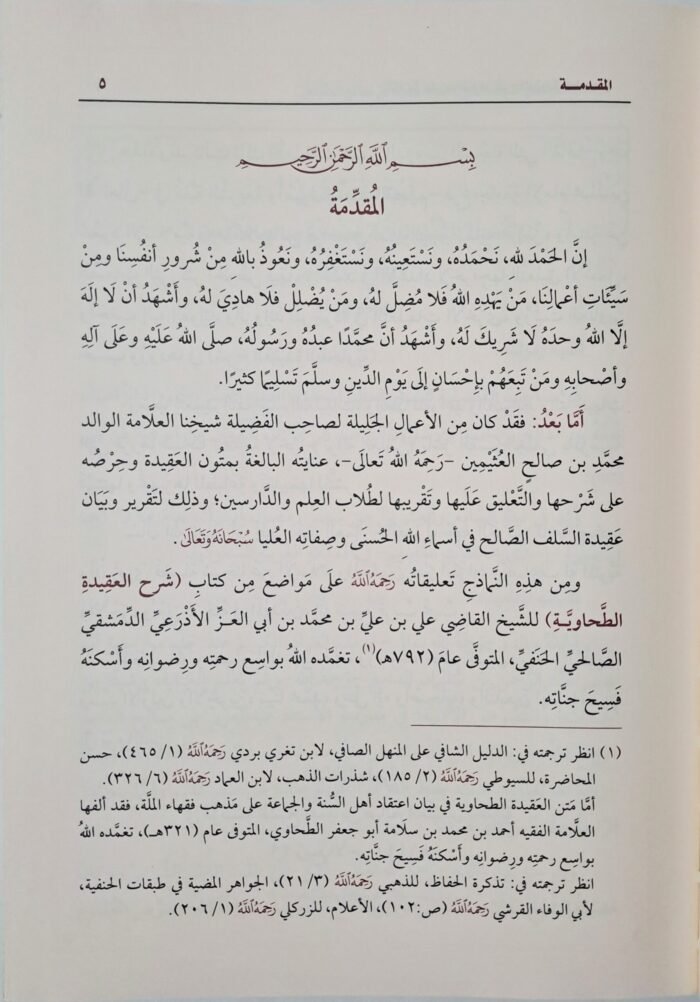 المقدمة ٥
بِسْمِ ٱللَّهِ ٱلرَّحْمَٰنِ ٱلرَّحِيمِ
المُقدِّمَةُ
إنَّ الحَمْدَ للهِ، نَحْمَدُهُ، ونَسْتَعِينُهُ، ونَسْتَغْفِرُهُ، ونَعُوذُ باللهِ مِنْ شُرورِ أنفُسِنَا ومِنْ
سَيِّئَاتِ أعْمالِنَا، مَنْ يَهْدِهِ اللهُ فَلا مُضِلَّ لهُ، ومَنْ يُضْلِلْ فلَا هادِيَ لهُ، وأَشْهَدُ أنْ لَا إلهَ
إلَّا اللهُ وحدَهُ لَا شَرِيكَ لَهُ، وأَشْهَدُ أنَّ محمَّدًا عبدُهُ ورَسُولُهُ، صلَّى اللهُ عَلَيْهِ وعَلَى آلِهِ
وأصْحابِهِ ومَنْ تَبِعَهُمْ بإِحْسَانٍ إلَى يَوْمِ الدِّينِ وسلَّمَ تَسْلِيمًا كثيرًا.
أَمَّا بَعْدُ: فقَدْ كان مِن الأعمالِ الجَلِيلة لصاحِب الفَضِيلة شيخِنا العلَّامة الوالد
محمَّدِ بن صالحٍ العُثَيْمِين -رَحِمَهُ اللهُ تَعالَى-، عنايتُه البالغةُ بمتُون العَقِيدة وحِرْصُه
على شَرْحها والتَّعْليق عَلَيها وتَقْريبها لطُلاب العِلم والدَّارسين؛ وذلِك لتَقْرير وبَيَان
عَقِيدة السَّلف الصَّالح في أسماءِ اللهِ الحُسنَى وصِفاتِه العُليا سُبْحَانَهُ وَتَعَالَىٰ.
ومِن هذِهِ النَّماذجِ تَعليقاتُه رَحِمَهُ ٱللَّهُ علَى مَواضعَ مِن كتابِ (شَرح العَقِيدةِ
الطَّحاويَّةِ) للشَّيخ القاضِي علي بن عليِّ بن محمَّد بن أبي العـزِّ الأَذْرَعِيِّ الدِّمَشقيِّ
الصَّالحيِّ الحَنَفيِّ، المتوفَّى عامَ (٧٩٢هـ)(١)، تغمَّده اللهُ بواسِع رحمتِه ورِضوانِه وأَسْكنَهُ
فَسِيحَ جنَّاتِه.
(١) انظر ترجمته في: الدليل الشافي على المنهل الصافي، لابن تغري بردي رَحِمَهُ ٱللَّهُ (١/ ٤٦٥)، حسن
المحاضرة، للسيوطي رَحِمَهُ ٱللَّهُ (٢/ ١٨٥)، شذرات الذهب، لابن العماد رَحِمَهُ ٱللَّهُ (٦/ ٣٢٦).
أمَّا مَتن العَقِيدة الطحاوية في بيان اعتقاد أهل السُّنة والجماعة على مَذهب فقهاء الملَّة، فقد ألفها
العلَّامة الفقيه أحمد بن محمد بن سلَامة أبو جعفر الطَّحاوي، المتوفى عام (٣٢١هـ)، تغمَّده اللهُ
بواسِع رحمتِه ورِضوانِه وأَسْكنَهُ فَسِيحَ جنَّاتِه.
انظر ترجمته في: تذكرة الحفاظ، للذهبي رَحِمَهُ ٱللَّهُ (٣/ ٢١)، الجواهر المضية في طبقات الحنفية،
لأبي الوفاء القرشي رَحِمَهُ ٱللَّهُ (ص:١٠٢)، الأعلام، للزركلي رَحِمَهُ ٱللَّهُ (١/ ٢٠٦).